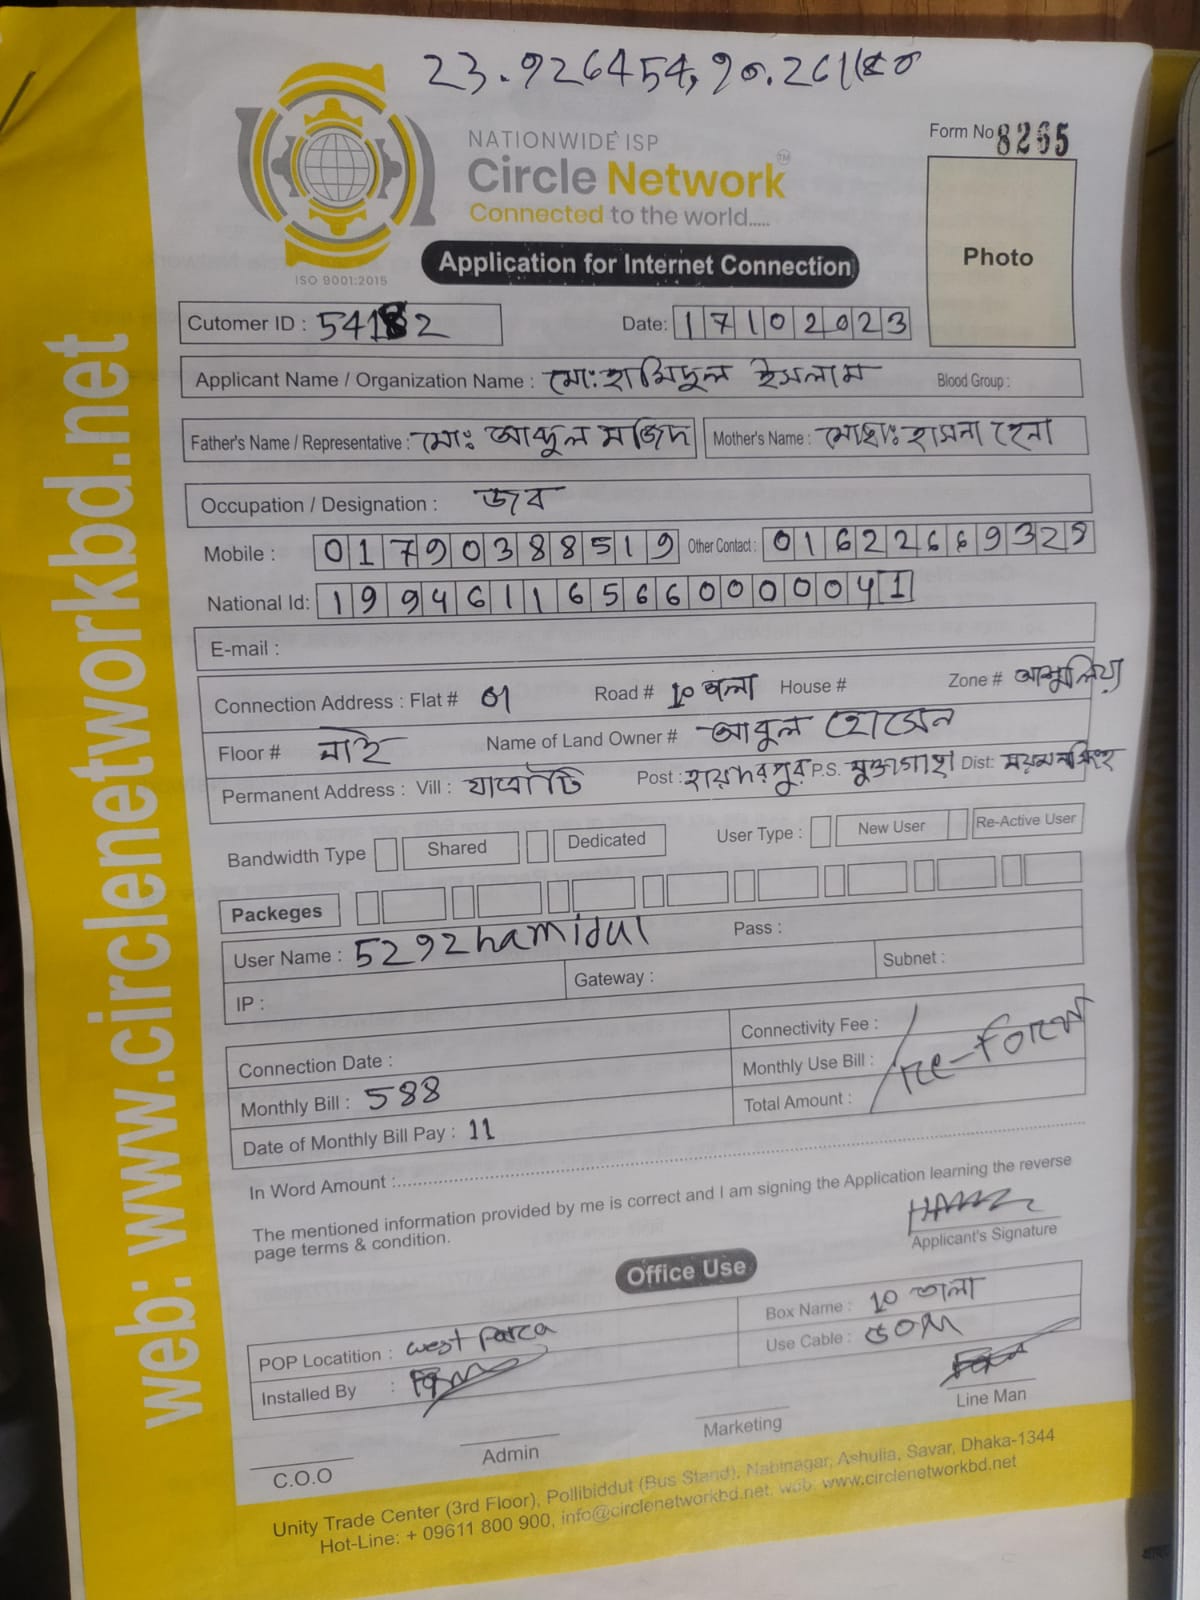 23.926454, 90.261
NATIONWIDE ISP
Circle Network TM
Connected to the world.....
ISO 9001:2015
Form No 8265
Photo
Application for Internet Connection
Cutomer ID : 54182
Date: 17102023
Applicant Name / Organization Name : মোঃ হামিদুল ইসলাম Blood Group :
Father's Name / Representative : মোঃ আব্দুল মজিদ Mother's Name : মোছাঃ হাসনা হেনা
Occupation / Designation : জব
Mobile : 01790388519 Other Contact : 01622669329
National Id: 19946116566000041
E-mail :
Connection Address : Flat # 01 Road # 10 তলা House # Zone # আশুলিয়া
Floor # নাই Name of Land Owner # আবুল হোসেন
Permanent Address : Vill : Post : হায়দরপুর P.S. মুক্তাগাছা Dist: ময়মনসিংহ
Bandwidth Type Shared Dedicated User Type : New User Re-Active User
Packeges
User Name : 5292hamidul Pass :
IP : Gateway : Subnet :
Connection Date :
Monthly Bill : 588
Date of Monthly Bill Pay : 11
Connectivity Fee :
Monthly Use Bill : re-form
Total Amount :
In Word Amount :
The mentioned information provided by me is correct and I am signing the Application learning the reverse
page terms & condition.
Applicant's Signature
Office Use
POP Locatition : west parca
Installed By :
Box Name : 10 তালা
Use Cable : 50M
C.O.O Admin Marketing Line Man
Unity Trade Center (3rd Floor), Pollibiddut (Bus Stand), Nabinagar, Ashulia, Savar, Dhaka-1344
Hot-Line: + 09611 800 900, info@circlenetworkbd.net, web: www.circlenetworkbd.net
web: www.circlenetworkbd.net